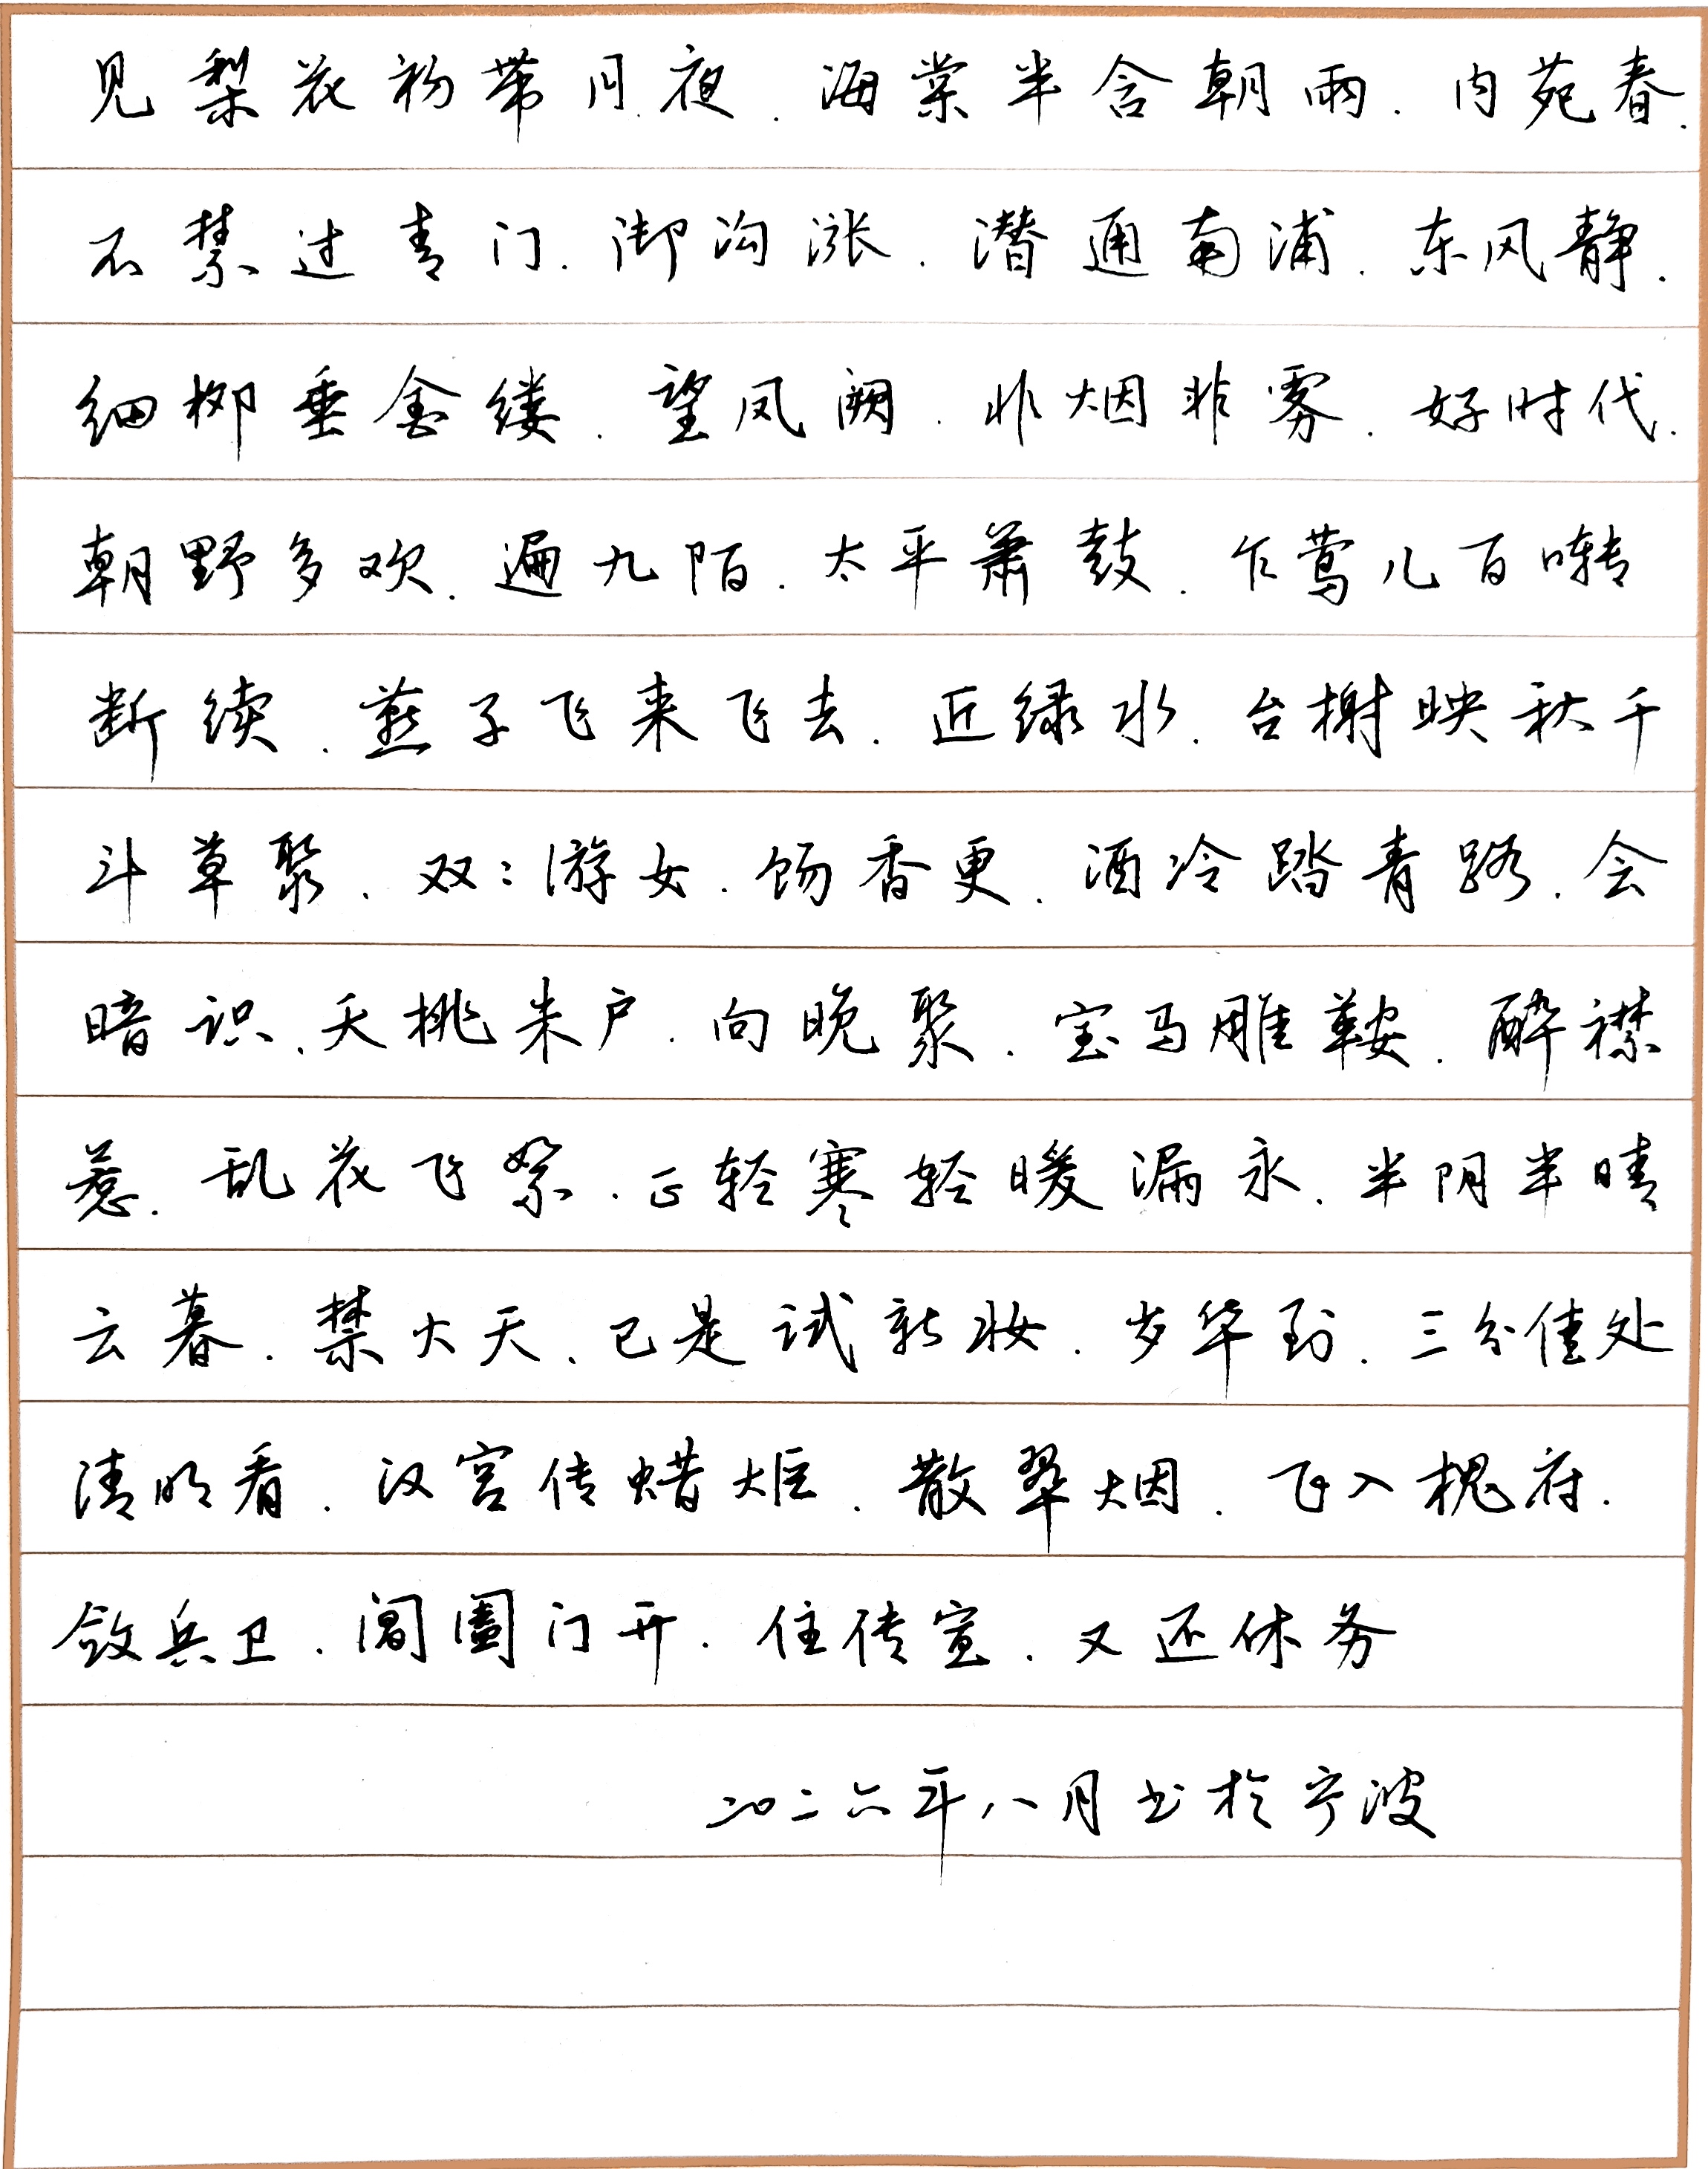 见梨花初带月夜.海棠半含朝雨.内苑春.
不禁过青门.御沟涨.潜通南浦.东风静.
细柳垂金缕.望凤阙.非烟非雾.好时代.
朝野多欢.遍九陌.太平萧鼓.乍莺儿百啭
断续.燕子飞来飞去.近绿水.台榭映秋千
斗草聚.双:游女.饧香更.酒冷踏青路.会
暗识.夭桃朱户.向晚聚.宝马雕鞍.醉襟
惹.乱花飞絮.正轻寒轻暖漏永.半阴半晴
云暮.禁火天.已是试新妆.岁华到.三分佳处
清明看.汉宫传蜡炬.散翠烟.飞入槐府.
敛兵卫.阊阖门开.住传宣.又还休务
二〇二六年八月书于宁波